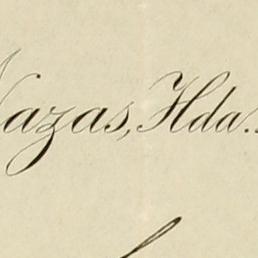 Nazas, Hda.